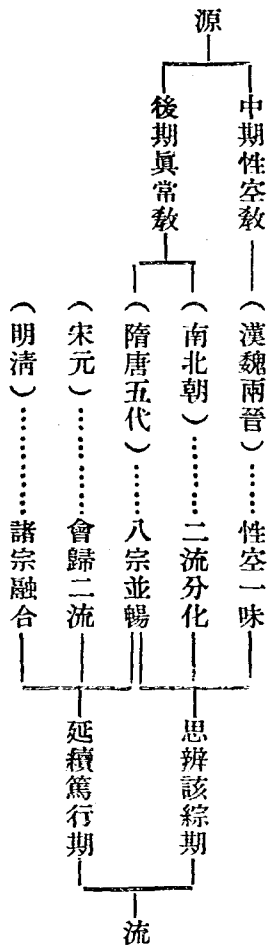 源
中期性空敎
後期眞常敎
（漢魏兩晉）………性空一味
（南北朝）………二流分化
（隋唐五代）………八宗並暢
（宋元）………會歸二流
（明清）………諸宗融合
思辨該綜期
延續篤行期
流